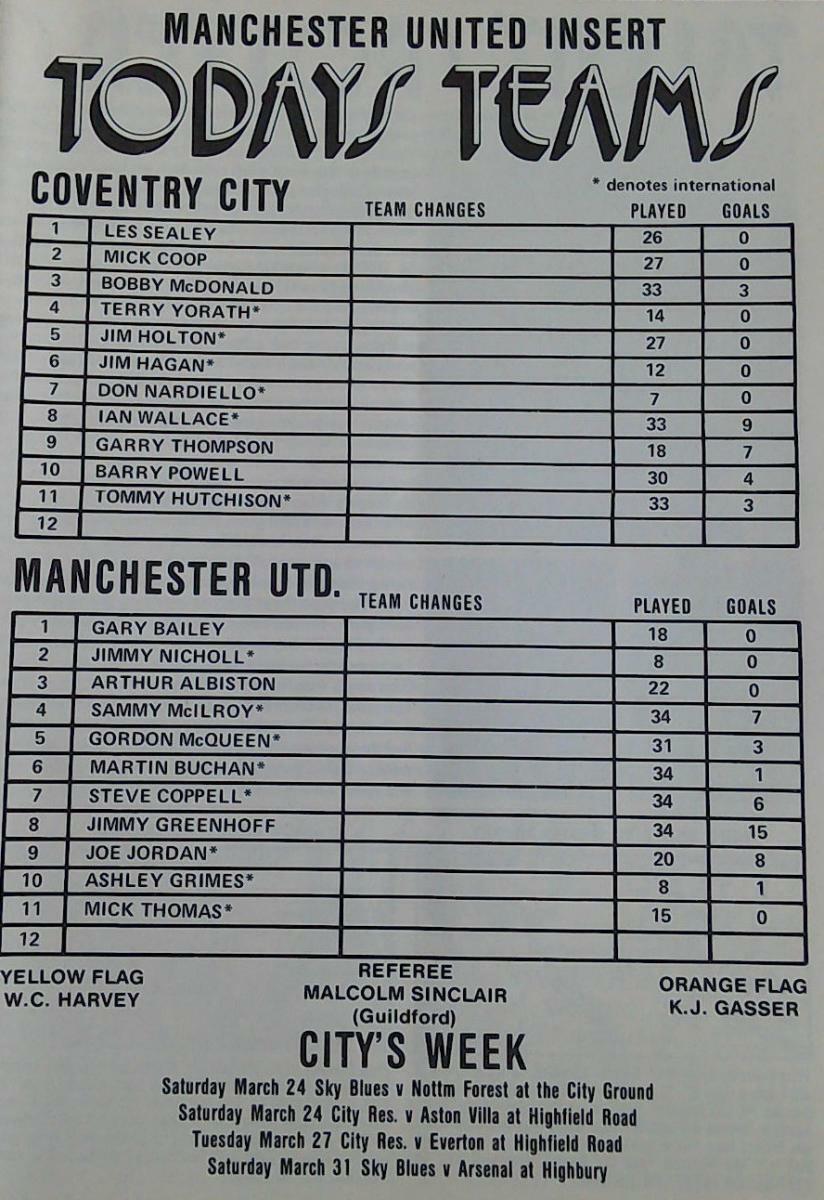 MANCHESTER UNITED INSERT
TODAYS TEAMS
* denotes international
COVENTRY CITY TEAM CHANGES PLAYED GOALS
1 LES SEALEY 26 0
2 MICK COOP 27 0
3 BOBBY McDONALD 33 3
4 TERRY YORATH* 14 0
5 JIM HOLTON* 27 0
6 JIM HAGAN* 12 0
7 DON NARDIELLO* 7 0
8 IAN WALLACE* 33 9
9 GARRY THOMPSON 18 7
10 BARRY POWELL 30 4
11 TOMMY HUTCHISON* 33 3
12
MANCHESTER UTD. TEAM CHANGES PLAYED GOALS
1 GARY BAILEY 18 0
2 JIMMY NICHOLL* 8 0
3 ARTHUR ALBISTON 22 0
4 SAMMY McILROY* 34 7
5 GORDON McQUEEN* 31 3
6 MARTIN BUCHAN* 34 1
7 STEVE COPPELL* 34 6
8 JIMMY GREENHOFF 34 15
9 JOE JORDAN* 20 8
10 ASHLEY GRIMES* 8 1
11 MICK THOMAS* 15 0
12
YELLOW FLAG
W.C. HARVEY
REFEREE
MALCOLM SINCLAIR
(Guildford)
ORANGE FLAG
K.J. GASSER
CITY'S WEEK
Saturday March 24 Sky Blues v Nottm Forest at the City Ground
Saturday March 24 City Res. v Aston Villa at Highfield Road
Tuesday March 27 City Res. v Everton at Highfield Road
Saturday March 31 Sky Blues v Arsenal at Highbury